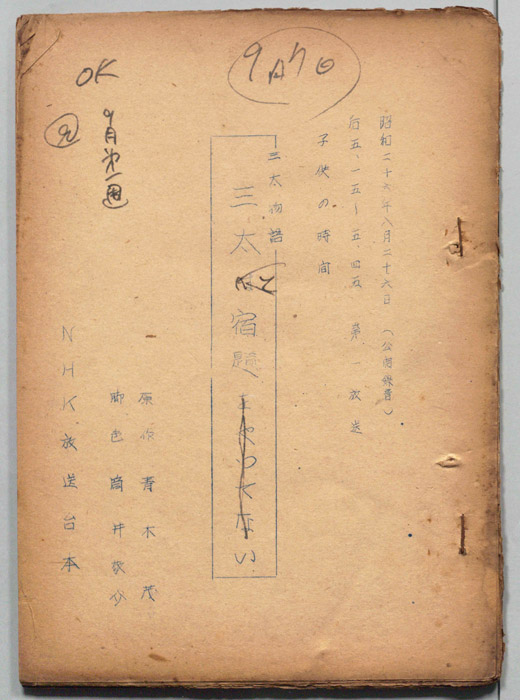 OK
9月7日
9月第一週
昭和二十六年八月二十六日 (公開録音)
后五、一五〜五、四五 第一放送
子供の時間
三太物語
三太と宿題をやってない
原作 青木茂
脚色 筒井敬介
NHK放送台本